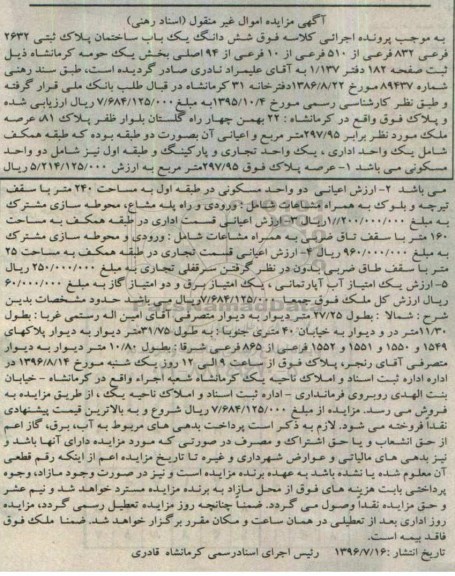 آگهی مزایده اموال غیر منقول (اسناد رهنی)
به موجب پرونده اجرائی کلاسه فوق شش دانگ یک باب ساختمان پلاک ثبتی ۲۶۳۲
فرعی ۸۳۲ فرعی از ۵۱۰ فرعی از ۱۰ فرعی از ۹۴ اصلی بخش یک حومه کرمانشاه ذیل
ثبت صفحه ۱۸۲ دفتر ۱/۱۳۷ به آقای علیمراد نادری صادر گردیده است، طبق سند رهنی
شماره ۸۹۴۳۷ مورخ ۱۳۸۶/۸/۲۲ دفترخانه ۳۱ کرمانشاه در قبال طلب بانک ملی قرار گرفته
و طبق نظر کارشناسی رسمی مورخ ۱۳۹۵/۱۰/۴ به مبلغ ۷/۶۸۴/۱۲۵/۰۰۰ ریال ارزیابی شده
و پلاک فوق واقع در کرمانشاه : ۲۲ بهمن چهار راه گلستان بلوار ظفر پلاک ۸۱ عرصه
ملک مورد نظر برابر ۲۹۷/۹۵ متر مربع و اعیانی آن بصورت دو طبقه بوده که طبقه همکف
شامل یک واحد اداری ، یک واحد تجاری و پارکینگ و طبقه اول نیز شامل دو واحد
مسکونی می باشد ۱- عرصه پلاک فوق ۲۹۷/۹۵ متر مربع به ارزش ۵/۲۱۴/۱۲۵/۰۰۰ ریال
می باشد ۲- ارزش اعیانی دو واحد مسکونی در طبقه اول به مساحت ۲۴۰ متر با سقف
تیرچه و بلوک به همراه مشاعات شامل : ورودی و راه پله مشاع، محوطه سازی مشترک
به مبلغ ۱/۲۰۰/۰۰۰/۰۰۰ ریال ۳- ارزش اعیانی قسمت اداری در طبقه همکف به مساحت
۱۶۰ متر با سقف تاق ضربی به همراه مشاعات شامل : ورودی و محوطه سازی مشترک
به مبلغ ۹۶۰/۰۰۰/۰۰۰ ریال ۴- ارزش اعیانی قسمت تجاری در طبقه همکف به مساحت ۲۵
متر با سقف طاق ضربی بدون در نظر گرفتن سرقفلی تجاری به مبلغ ۲۵۰/۰۰۰/۰۰۰ ریال
۵- ارزش یک امتیاز آب آپارتمانی ، یک امتیاز برق و دو امتیاز گاز به مبلغ ۶۰/۰۰۰/۰۰۰
ریال ارزش کل ملک فوق جمعا ۷/۶۸۴/۱۲۵/۰۰۰ ریال می باشد حدود مشخصات بدین
شرح : شمالا : بطول ۲۷/۲۵ متر دیوار به دیوار متصرفی آقای امین اله رستمی غربا : بطول
۱۱/۳۰ متر در و دیوار به خیابان ۴۰ متری جنوبا : به طول ۳۱/۷۵ متر دیوار به دیوار پلاکهای
۱۵۴۹ و ۱۵۵۰ و ۱۵۵۱ و ۱۵۵۲ فرعی از ۸۶۵ فرعی شرقا : بطول ۱۰/۸۰ متر دیوار به دیوار
متصرفی آقای رنجبر، پلاک فوق از ساعت ۹ الی ۱۲ روز یک شنبه مورخ ۱۳۹۶/۸/۱۴ در
اداره اداره ثبت اسناد و املاک ناحیه یک کرمانشاه شعبه اجراء واقع در کرمانشاه - خیابان
بنت الهدی روبروی فرمانداری - اداره ثبت اسناد و املاک ناحیه یک ، از طریق مزایده به
فروش می رسد. مزایده از مبلغ ۷/۶۸۴/۱۲۵/۰۰۰ ریال شروع و به بالاترین قیمت پیشنهادی
نقدا فروخته می شود. لازم به ذکر است پرداخت بدهی های مربوط به آب، برق، گاز اعم
از حق انشعاب و یا حق اشتراک و مصرف در صورتی که مورد مزایده دارای آنها باشد و
نیز بدهی های مالیاتی و عوارض شهرداری و غیره تا تاریخ مزایده اعم از اینکه رقم قطعی
آن معلوم شده یا نشده باشد به عهده برنده مزایده است و نیز در صورت وجود مازاد، وجوه
پرداختی بابت هزینه های فوق از محل مازاد به برنده مزایده مسترد خواهد شد و نیم عشر
و حق مزایده نقداً وصول می گردد. ضمنا چنانچه روز مزایده تعطیل رسمی گردد، مزایده
روز اداری بعد از تعطیلی در همان ساعت و مکان مقرر برگزار خواهد شد. ضمنا ملک فوق
فاقد بیمه است.
تاریخ انتشار :۱۳۹۶/۷/۱۶ رئیس اجرای اسنادرسمی کرمانشاه قادری